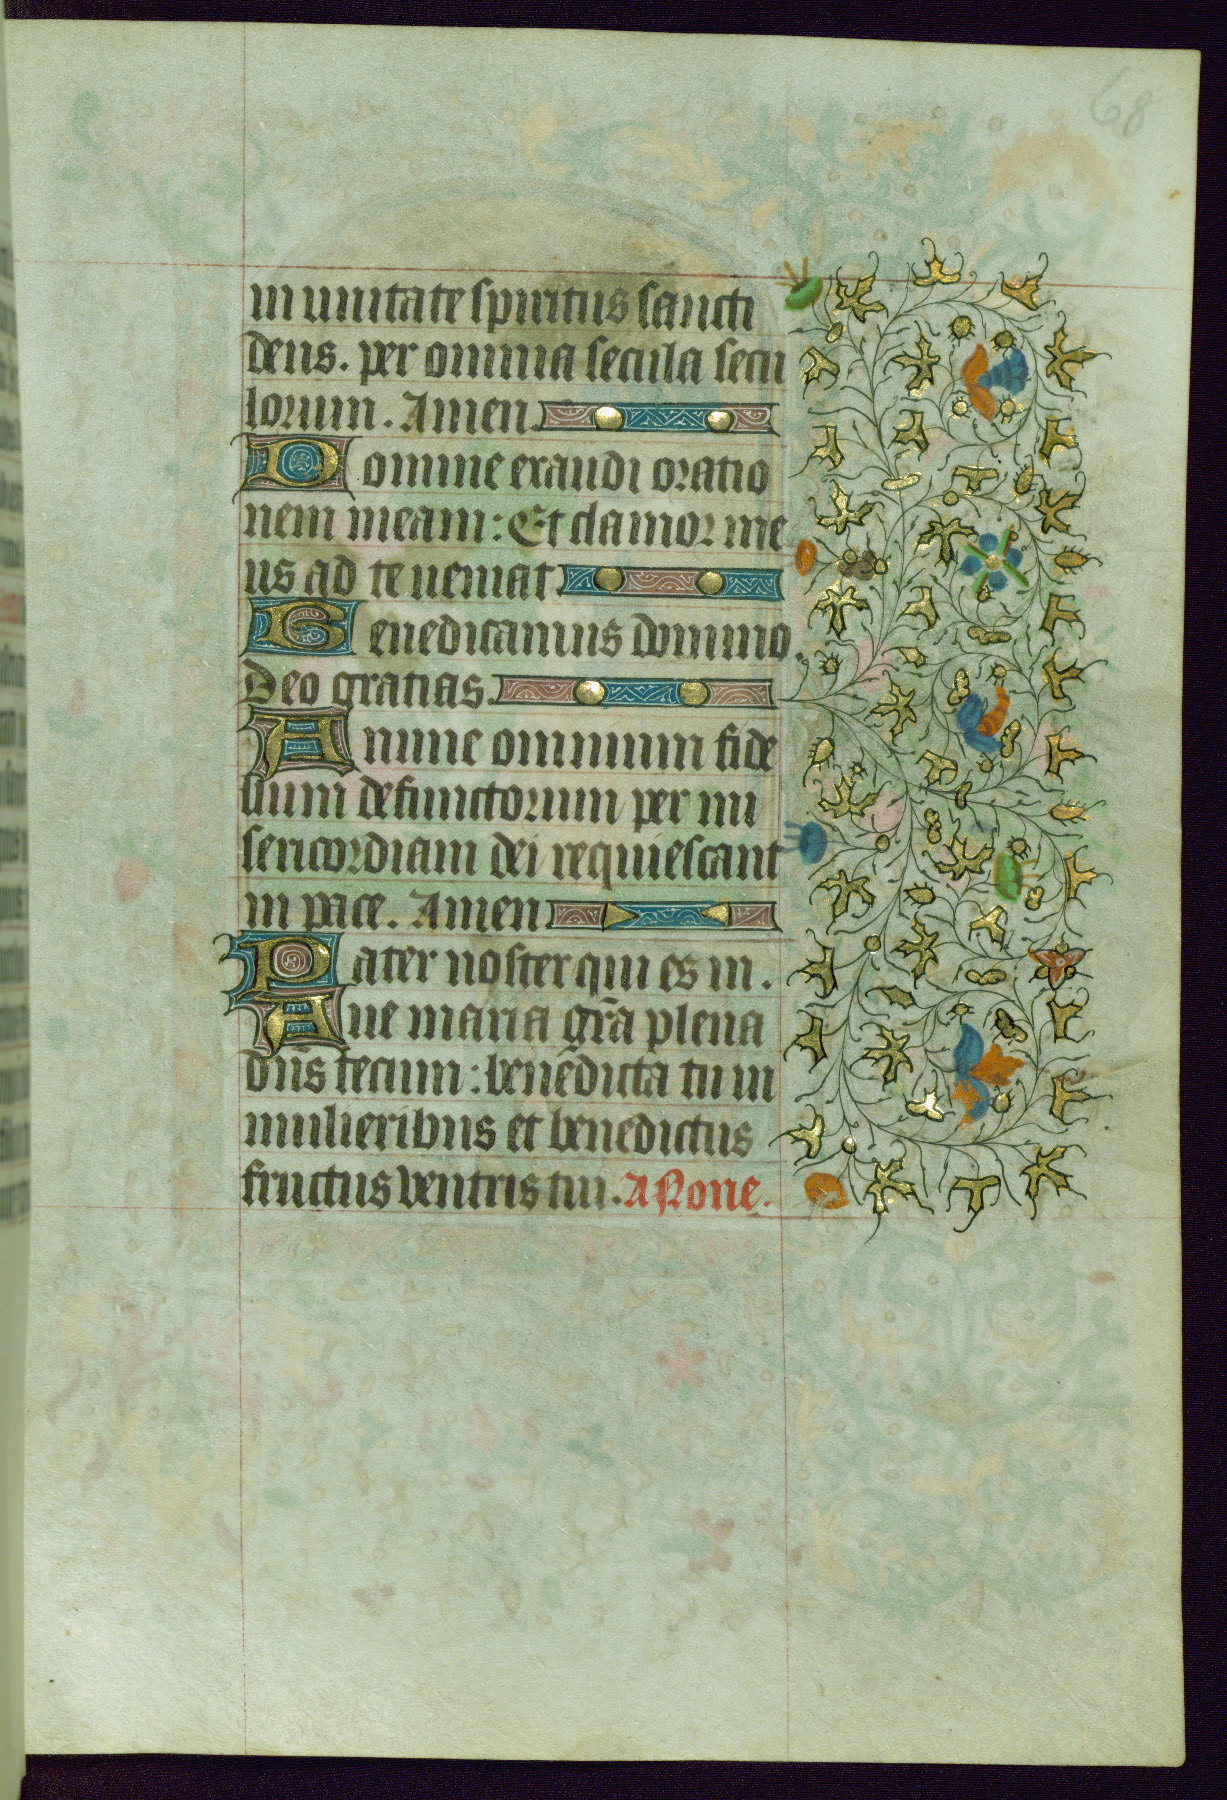 68
in unitate spiritus sancti
deus. per omnia secula secu
lorum. Amen.
Domine exaudi oratio
nem meam: Et clamor me
us ad te ueniat.
Benedicamus domino.
Deo gratias.
Anime omnium fide
lium defunctorum per mi
sericordiam dei requiescant
in pace. Amen.
Pater noster qui es in.
Aue maria gr̃a plena
dñs tecum: benedicta tu in
mulieribus et benedictus
fructus ventris tui. A None.